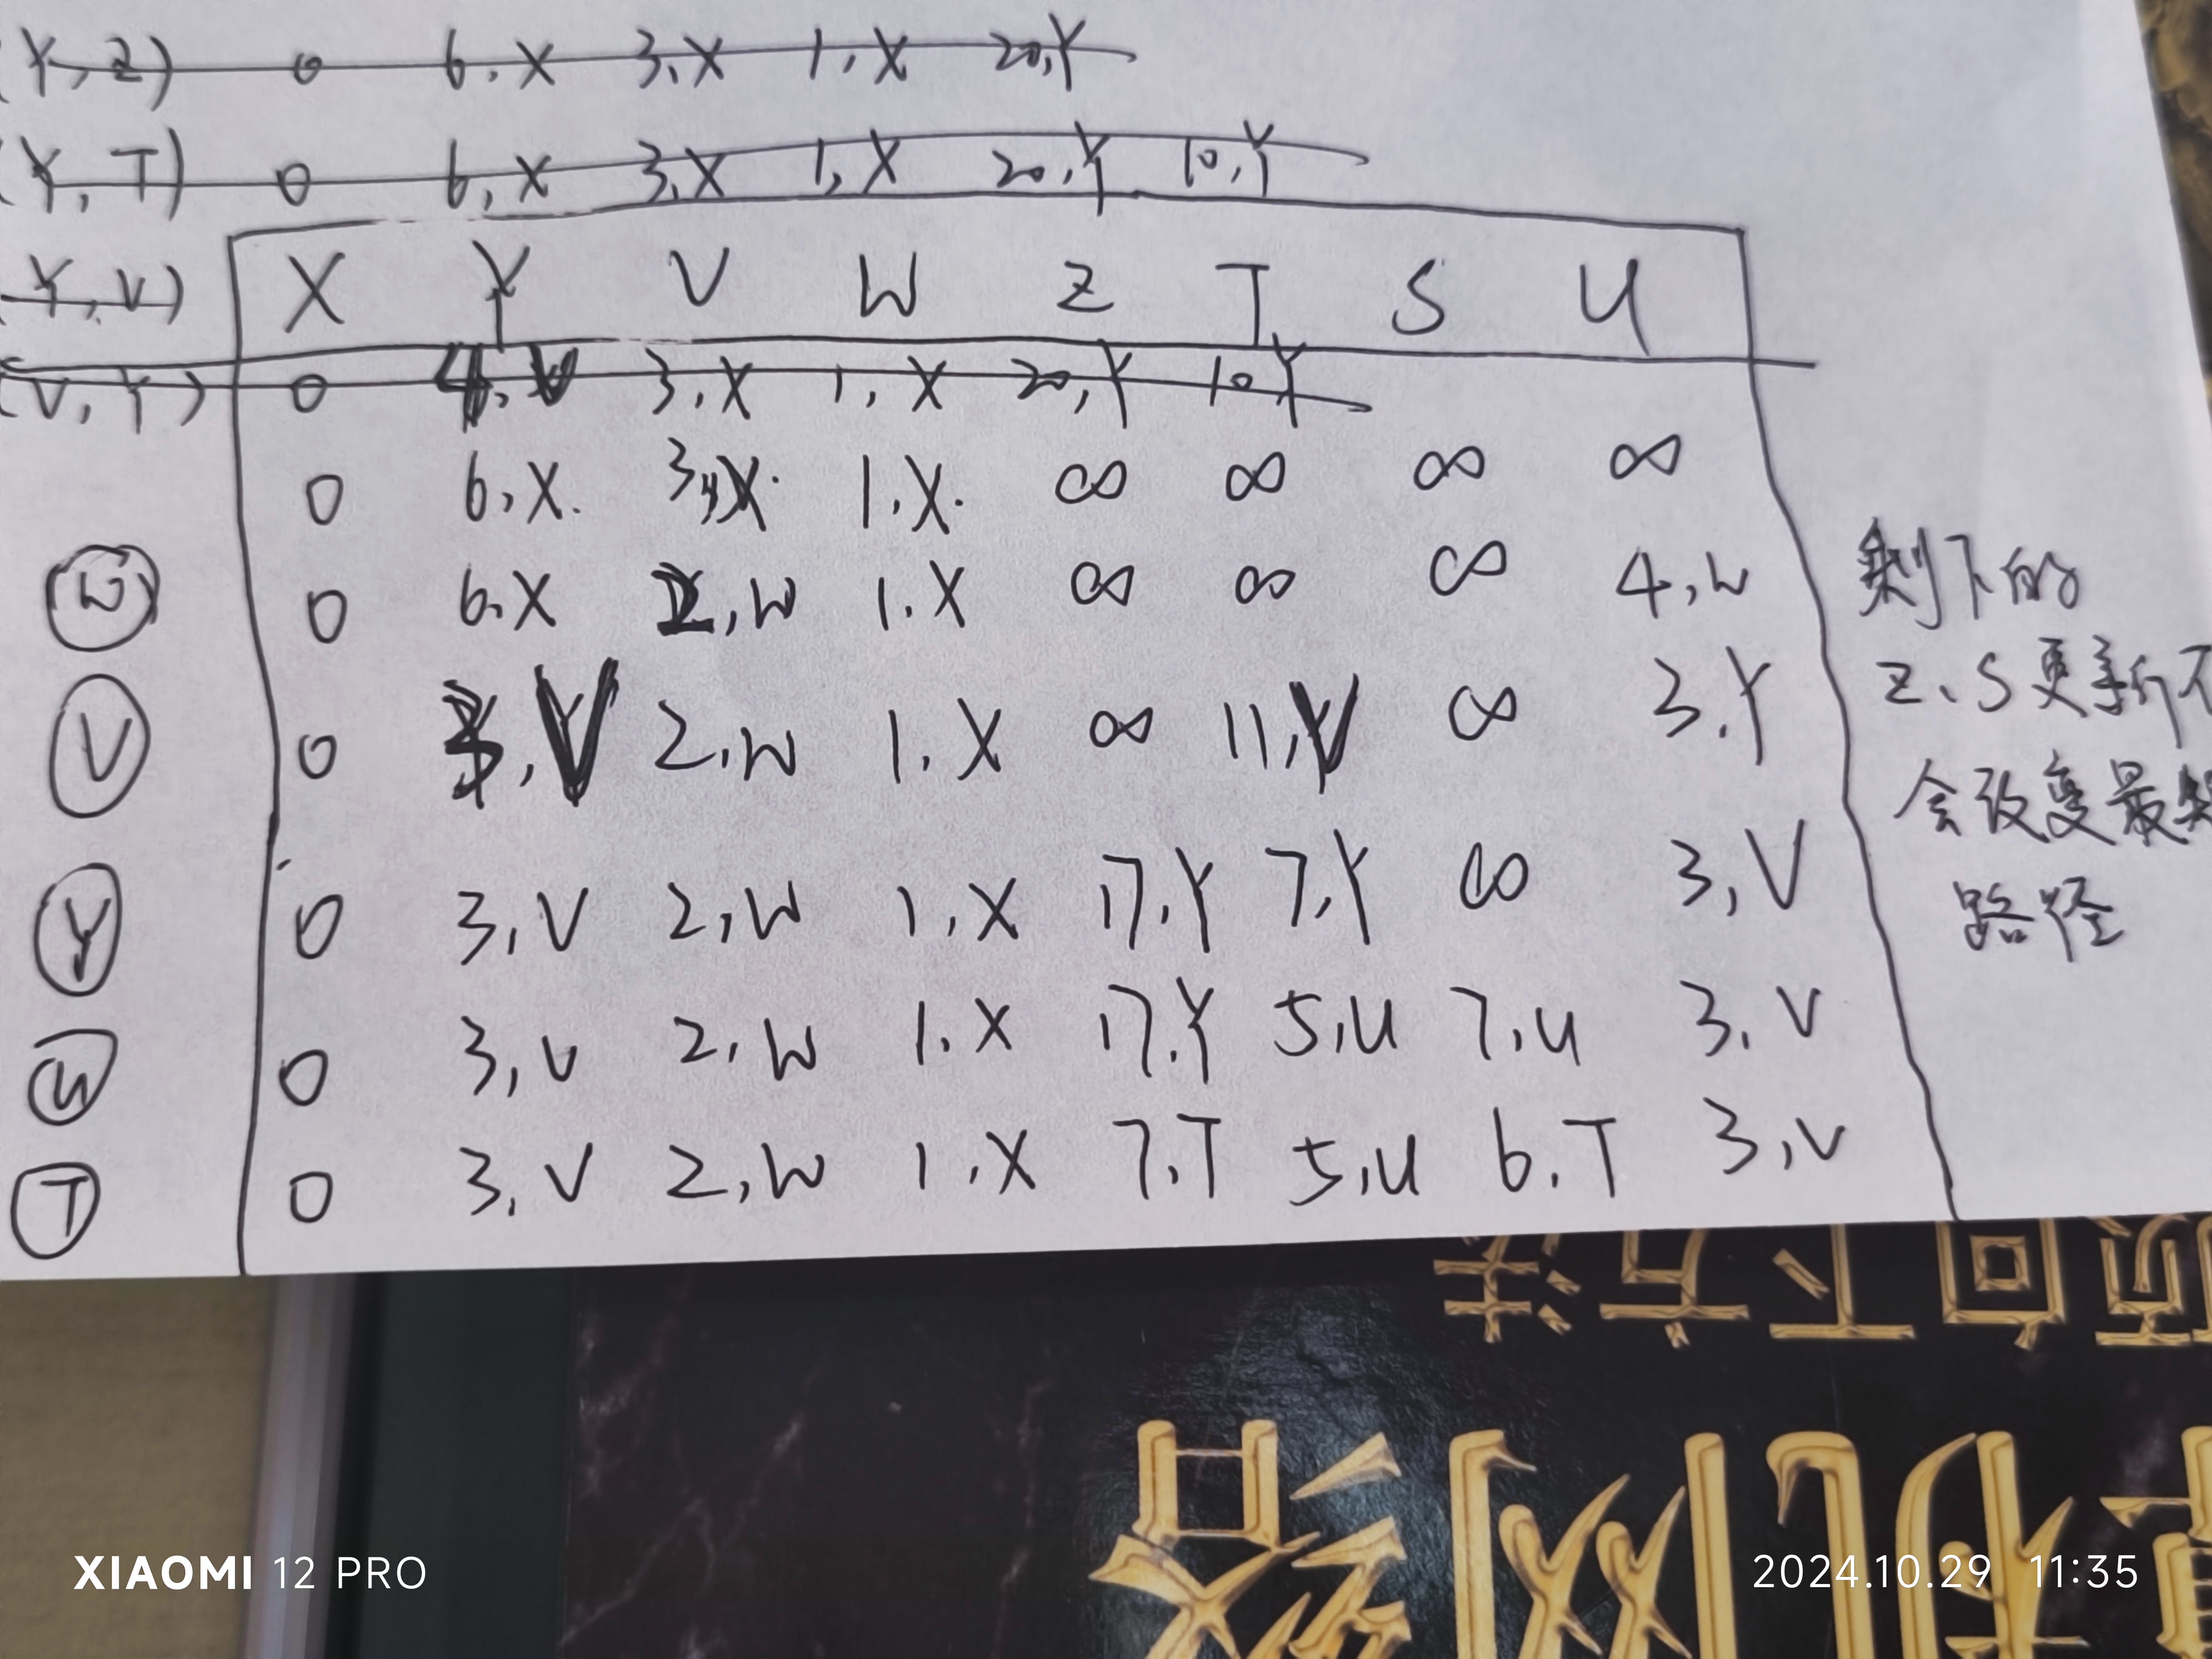 (Y, Z) 0 6, X 3, X 1, X 20, Y
(Y, T) 0 6, X 3, X 1, X 20, Y 10, Y
(Y, V) X Y V W Z T S U
(V, Y) 0 4, V 3, X 1, X 20, Y 10, Y
0 6, X. 3, X. 1, X. ∞ ∞ ∞ ∞
W 0 6, X 2, W 1, X ∞ ∞ ∞ 4, W
V 0 3, V 2, W 1, X ∞ 11, V ∞ 3, Y
Y 0 3, V 2, W 1, X 17, Y 7, Y ∞ 3, V
U 0 3, V 2, W 1, X 17, Y 5, U 7, U 3, V
T 0 3, V 2, W 1, X 7, T 5, U 6, T 3, V
剩下的
Z、S更新不
会改变最短
路径
XIAOMI 12 PRO
2024.10.29 11:35